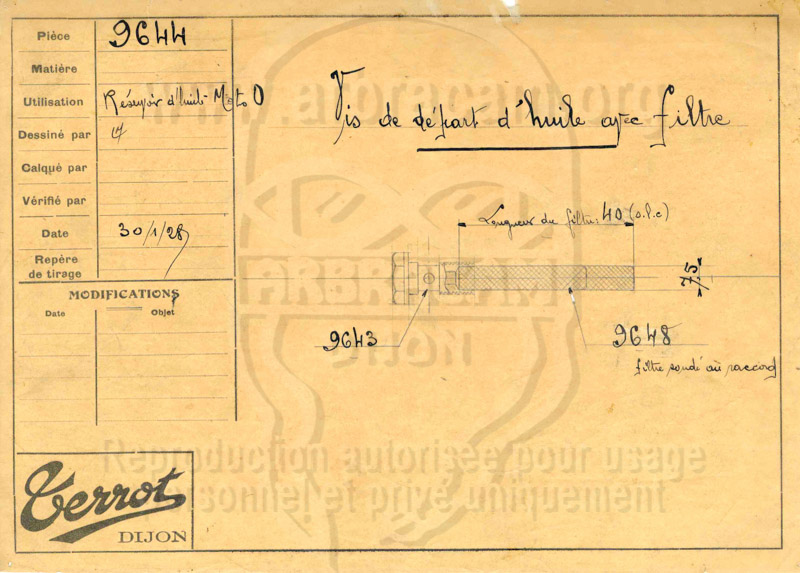 Pièce 9644
Matière
Utilisation Réservoir d'huile Moto O
Dessiné par
Calqué par
Vérifié par
Date 30/1/28
Repère
de tirage
MODIFICATIONS
Date Objet
Vis de départ d'huile avec filtre
Longueur du filtre: 40 (o.l.c)
7,5
9643
9648
filtre soudé au raccord
www.abracam.org
DIJON
Reproduction autorisée pour usage
personnel et privé uniquement
Terrot
DIJON